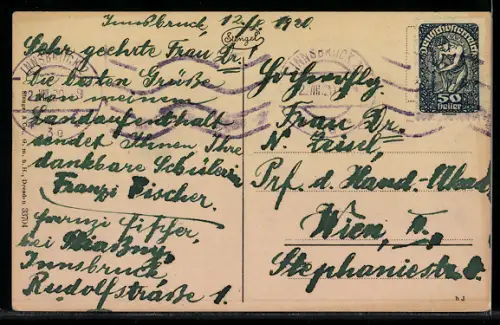 Innsbruck, 12. 1920.
Stengel
Sehr geehrte Frau Dr.
Die besten Grüße
von meinem
Landaufenthalt
sendet Ihnen Ihre
dankbare Schülerin
Franzi Fischer.
Franzi Fischer,
bei
Innsbruck
Rudolfstraße 1.
Stengel & Co., G. m. b. H., Dresden
INNSBRUCK
INNSBRUCK
Deutschösterreich
50
heller
Frau Dr.
N.
Prf. d. Hand.-Akad.
Wien, II.
Stephaniestr.